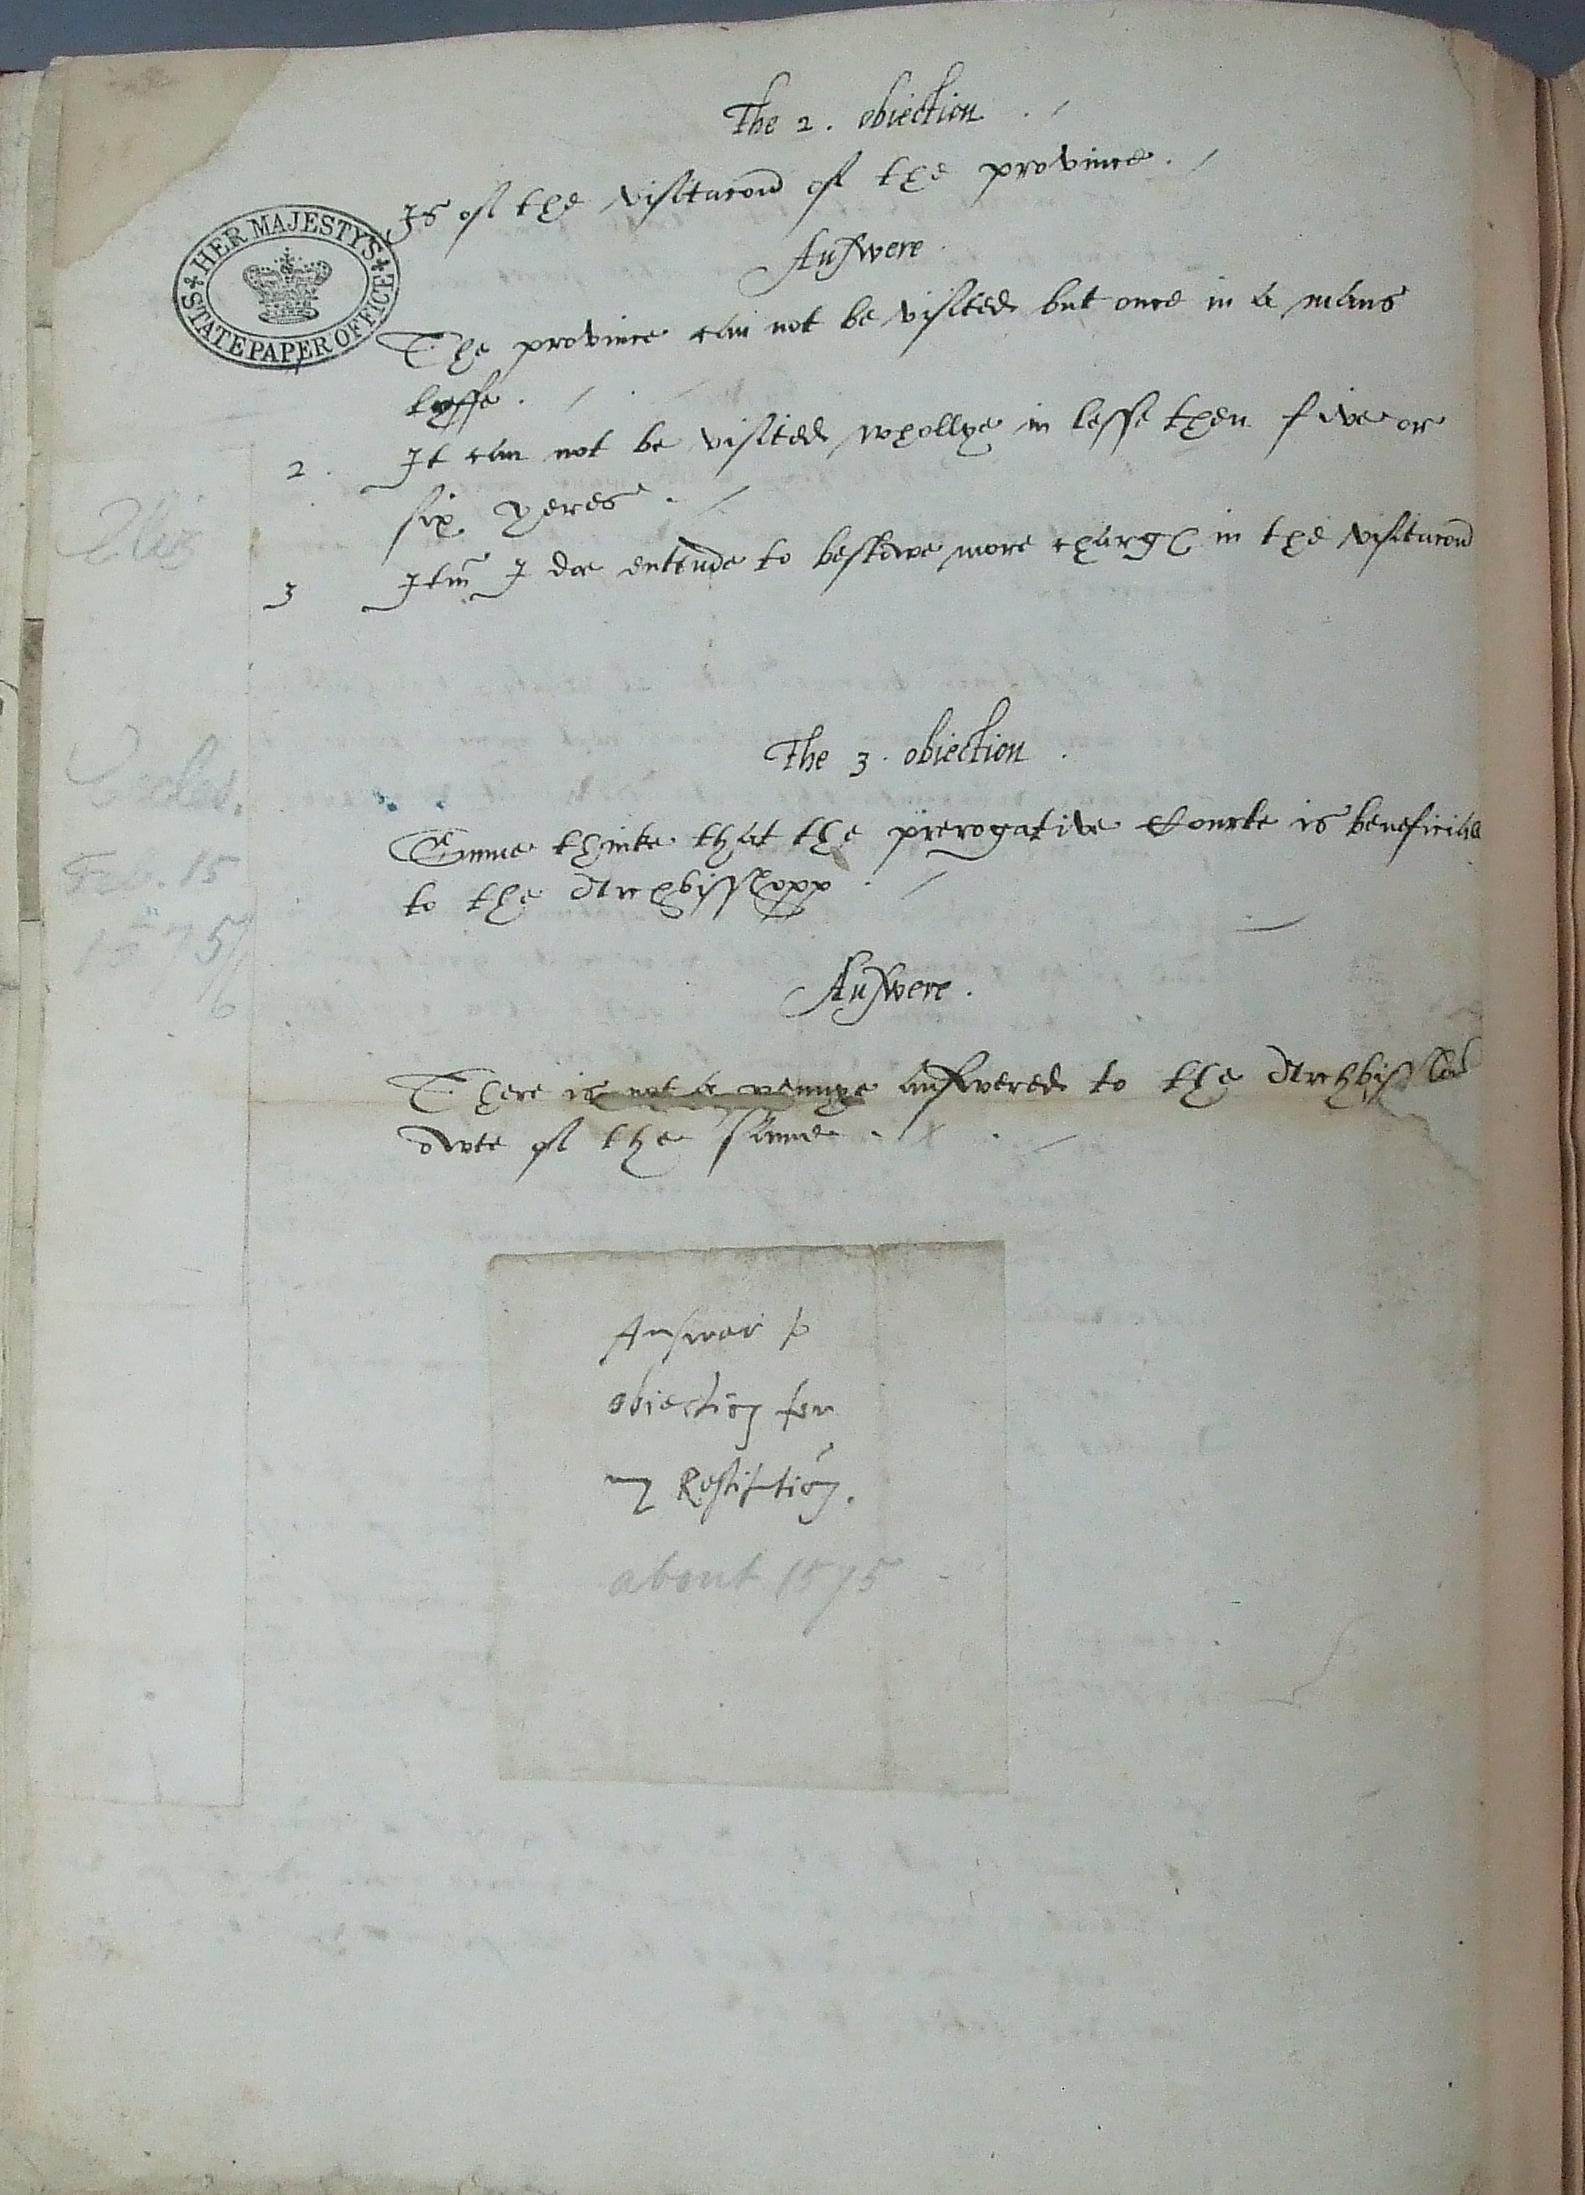 The 2. obiection
Is of the visitacon of the province.
HER MAJESTY'S STATE PAPER OFFICE
Answere.
The province can not be visited but once in a mans
lyffe.
2. It can not be visited whollye in lesse then five or
six yeres.
3 Itm I doe entende to bestowe more charg in the visitacon
The 3. obiection.
Eliz
Eccles.
15
1575/6
Summe thinke that the prerogative Courte is beneficiall
to the Archbisshopp.
Answere.
There is not a pennye answered to the Archbiss
owte of the same.
Answer to
obiection for
my Restitution.
about 1575